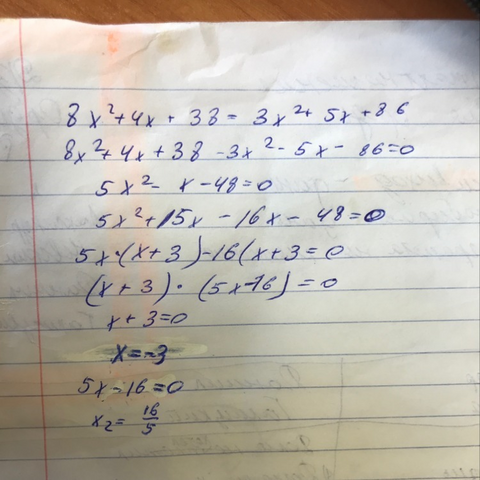 8x²+4x + 38 = 3x²+ 5x +86
8x²+4x +38 -3x²- 5x - 86=0
5x²- x -48=0
5x²+15x -16x - 48=0
5x·(x+3)-16(x+3=0
(x+3)·(5x-16)=0
x+3=0
x=-3
5x-16=0
x₂= 16/5